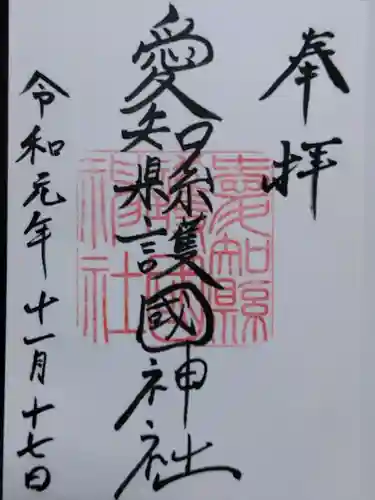 奉拝
愛知県護國神社
愛知縣
護國
神社
令和元年十一月十七日